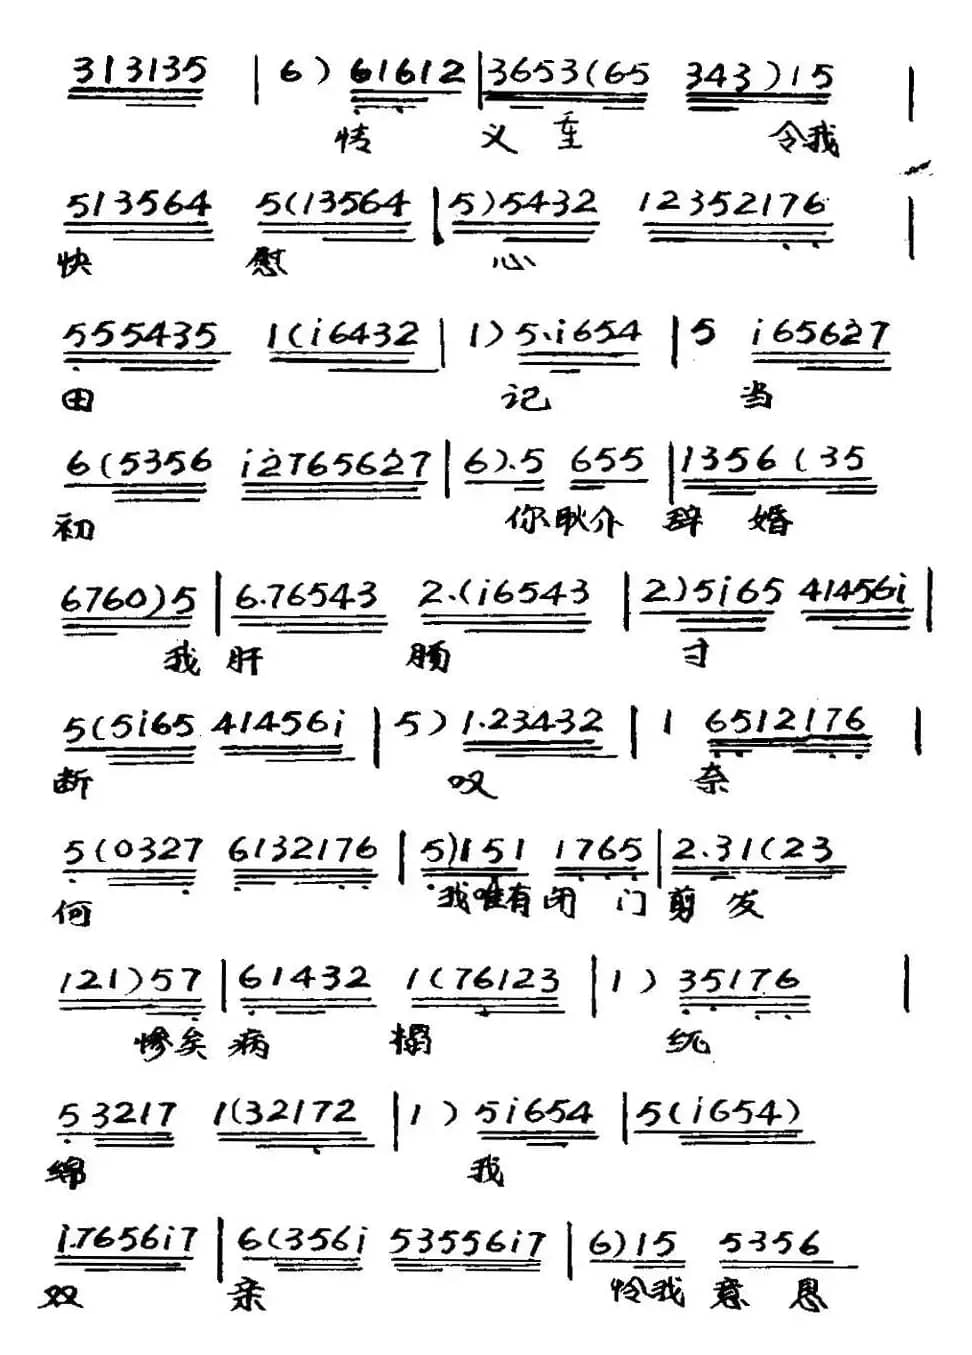 313135 | 6) 61612 | 3653(65 343)15 |
情 义 重 令我
513564 5(13564 | 5)5432 12352176 |
快 慰 心
555435 1(i6432 | 1) 5.i654 | 5 i65627
田 记 当
6(5356 i2765627 | 6).5 655 | 1356(35
初 你耿介 辞 婚
6760)5 | 6.76543 2.(i6543 | 2)5i65 41456i |
我 肝 肠 寸
5(5i65 41456i | 5) 1.23432 | 1 6512176 |
断 叹 奈
5(0327 6132176 | 5)151 1765 | 2.31(23
何 我唯有闭 门 剪 发
121)57 | 61432 1(76123 | 1) 35176 |
惨矣 病 榻 缠
53217 1(32172 | 1) 5i654 | 5(i654)
绵 我
i.7656i7 | 6(356i 53556i7 | 6)15 5356
双 亲 怜我 意 恩